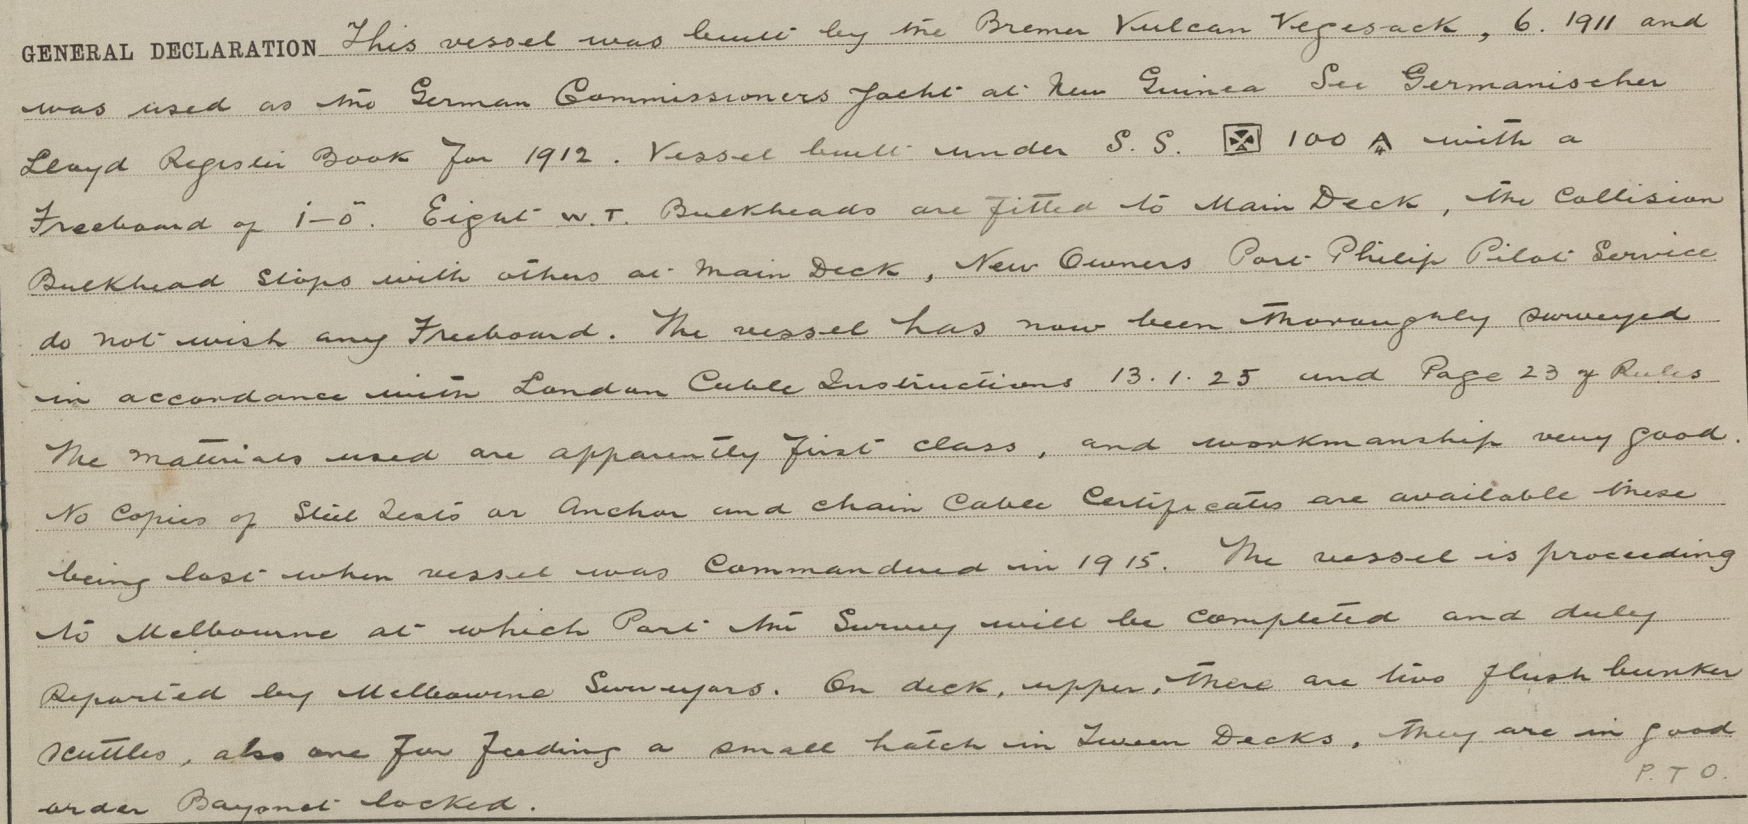 GENERAL DECLARATION This vessel was built by the Bremer Vulcan Vegesack, 6. 1911 and
was used as the German Commissioners Yacht at New Guinea See Germanischer
Lloyd Register Book for 1912. Vessel built under S. S. 100 A with a
Freeboard of 1-0. Eight W.T. Bulkheads are fitted to Main Deck, the Collision
Bulkhead stops with others at Main Deck, New Owners Port Philip Pilot Service
do not wish any Freeboard. The vessel has now been thoroughly surveyed
in accordance with London Cable Instructions 13.1.25 and Page 23 of Rules
The materials used are apparently first class, and workmanship very good.
No Copies of Steel Tests or Anchor and chain Cable Certificates are available these
being lost when vessel was Commandered in 1915. The vessel is proceeding
to Melbourne at which Port the Survey will be completed and duly
Reported by Melbourne Surveyors. On deck, upper, there are two flush bunker
scuttles, also one for feeding a small hatch in Tween Decks, they are in good
order Bayonet locked.
P. T O.